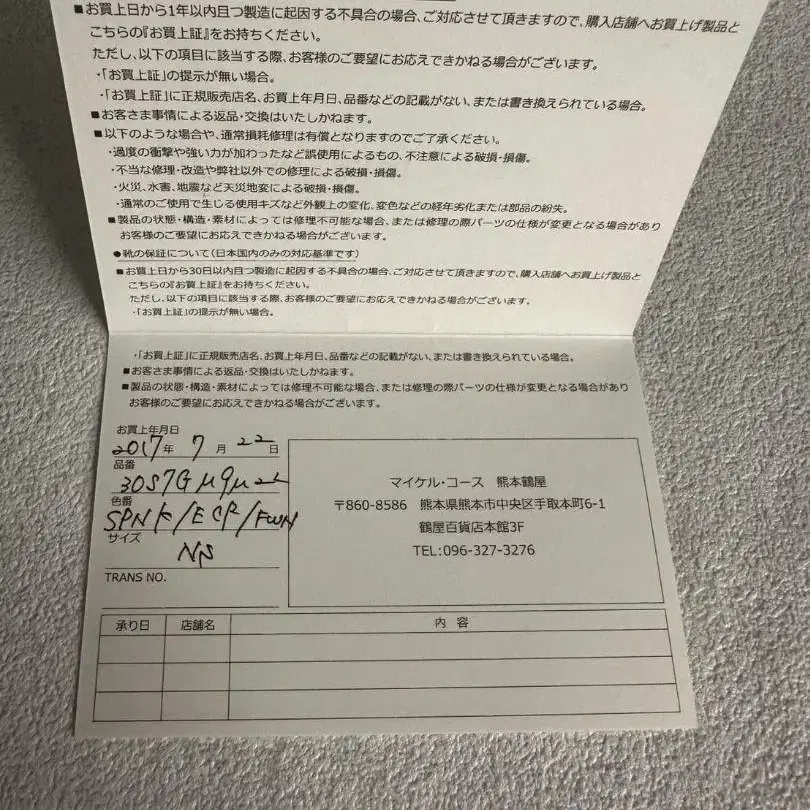 ■お買上日から1年以内且つ製造に起因する不具合の場合、ご対応させて頂きますので、購入店舗へお買上げ製品と
こちらの『お買上証』をお持ちください。
ただし、以下の項目に該当する際、お客様のご要望にお応えできかねる場合がございます。
・「お買上証」の提示が無い場合。
・「お買上証」に正規販売店名、お買上年月日、品番などの記載がない、または書き換えられている場合。
■お客さま事情による返品・交換はいたしかねます。
■以下のような場合や、通常損耗修理は有償となりますのでご了承ください。
・過度の衝撃や強い力が加わったなど誤使用によるもの、不注意による破損・損傷。
・不当な修理・改造や弊社以外での修理による破損・損傷。
・火災、水害、地震など天災地変による破損・損傷。
・通常のご使用で生じる使用キズなど外観上の変化、変色などの経年劣化または部品の紛失。
■製品の状態・構造・素材によっては修理不可能な場合、または修理の際パーツの仕様が変更となる場合があり
お客様のご要望にお応えできかねる場合がございます。
●靴の保証について(日本国内のみの対応基準です)
■お買上日から30日以内且つ製造に起因する不具合の場合、ご対応させて頂きますので、購入店舗へお買上げ製品と
こちらの『お買上証』をお持ちください。
ただし、以下の項目に該当する際、お客様のご要望にお応えできかねる場合がございます。
・「お買上証」の提示が無い場合。
・「お買上証」に正規販売店名、お買上年月日、品番などの記載がない、または書き換えられている場合。
■お客さま事情による返品・交換はいたしかねます。
■製品の状態・構造・素材によっては修理不可能な場合、または修理の際パーツの仕様が変更となる場合があり
お客様のご要望にお応えできかねる場合がございます。
お買上年月日
2017年 7月 22日
品番
色番
SPNK/ECR/FWN
サイズ
NS
TRANS NO.
マイケル・コース 熊本鶴屋
〒860-8586 熊本県熊本市中央区手取本町6-1
鶴屋百貨店本館3F
TEL:096-327-3276
承り日 店舗名 内 容